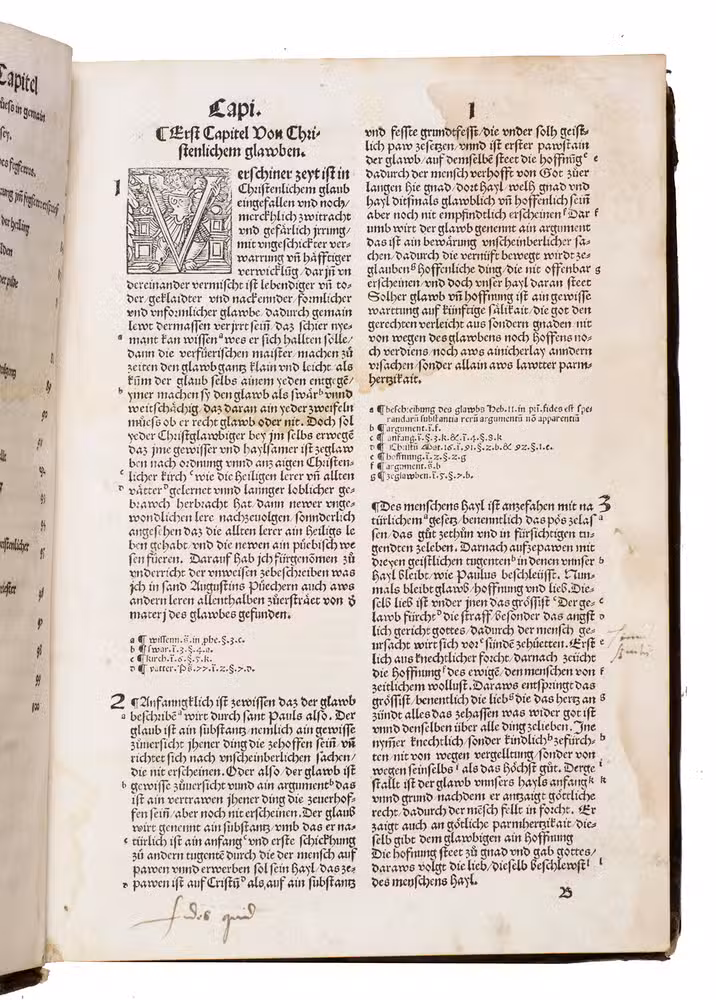 Capitel
Capi. 1
¶ Erst Capitel Von Chri-
stenlichem glawben.
1
Verschiner zeyt ist in
Christenlichem glaub
eingefallen vnd noch/
mercklich zwitracht
vnd gefärlich jrrung/
mit vngeschickter ver-
warrung vñ häfftiger
verwicklũg/ darjñ vn
dereinander vermischt ist lebendiger vñ to-
der/ geklaidter vnd nackennder/ formlicher
vnd vnformlicher glawbe/ dadurch gemain
lewt dermassen verjrrt sein̄/ daz schier nye-
mant kan wissen a wes er sich hallten solle/
dann die verfüerischen maister/ machen zů
zeiten den glawb gantz klain vnd leicht/ als
kum̄ der glaub selbs ainem yeden entgegē/
ymer machen sy den glawb als swär b vnnd
weitschächig/ daz daran ain yeder zweifeln
müess ob er recht glawb oder nit. Doch sol
yeder Christglawbiger bey jm selbs erwegē
daz jme gewisser vnd haylsamer ist zeglaw
ben nach ordnung vnnd anzaigen Christen-
licher kirch c wie die heiligen lerer vñ allten
vätter d gelernet vnnd lannger loblicher ge-
brawch herbracht hat/ dann newer vnge-
wondlichen lere nachzeuolgen/ sonnderlich
angesehen daz die allten lerer ain Heiligs le
ben gehabt/ vnd die newen ain püebisch we
sen füeren. Darauf hab jch fürgenömen zů
vnderricht der vnweisen zebeschreiben was
jch in sand Augustins Püechern auch aws
andern leren allenthalben züersträet von d
materj des glawbes gefunden.
a ¶ wissenn. s̄. in phe. §. 3. c.
b ¶ swär. i. 3. §. 4. a.
c ¶ kirch. i. 6. §. 5. k.
d ¶ vätter. Ps. 77. i. 2. §. 7. d.
2 ¶ Anfanngklich ist zewissen daz der glawb
beschribē a wirt durch sant Pauls also. Der
glaub ist ain substantz/ nemlich ain gewisse
züuersicht jhener ding die zehoffen sein̄/ vñ
richtet sich nach vnscheinberlichen sachen/
die nit erscheinen. Oder also/ der glawb ist
gewisse züuersicht vnnd ain argument b das
ist ain vertrawen jhener ding die zeuerhof-
fen sein̄/ aber noch nit erscheinen. Der glaub
wirt genennt ain substantz/ vmb das er na-
türlich ist ain anfang c vnd erste schickhung
zů andern tugentē/ durch die der mensch auf
pawen vnnd erwerben sol sein hayl/ das ze-
pawen ist auf Cristū d als auf ain substantz
vnd fesste grundtfesst/ die vnder solh geist-
lich paw zesetzen/ vnnd ist erster pawstain
der glawb/ auf demselbē steet die hoffnūg e
dadurch der mensch verhofft von Got züer
langen hie gnad/ dort hayl/ welh gnad vnd
hayl ditsmals glawblich vñ hoffenlich sein
aber noch nit empfindtlich erscheinen f Dar
umb wirt der glawb genennt ain argument
das ist ain bewärung vnscheinberlicher sa-
chen/ dadurch die vernüft bewegt wirdt ze-
glauben g hoffenliche ding/ die nit offenbar
erscheinen/ vnd doch vnser hayl daran steet
Solher glawb vñ hoffnung ist ain gewisse
warttung auf künftige sälikait/ die got den
gerechten verleicht aus sondern gnaden/ nit
von wegen des glawbens noch hoffens/ no-
ch verdiens/ noch aws ainicherlay anndern
vrsachen/ sonder allain aws lawtter parm-
hertzikait.
a ¶ beschreibung des glawbs Heb. 11. in pri. fides est spe-
randarū substantia rerū argumentū nō apparentiū
b ¶ argument. i. f.
c ¶ anfang. i. §. 3. k. &. i. 4. §. 8. k
d ¶ Christū Mat. 16. i. 91. §. 2. b. & 92. §. 1. e.
e ¶ hoffnung. i. 2. §. 2. g
f ¶ argument. s̄. b
g ¶ zeglawben. i. 5. §. 7. b.
3
¶ Des menschens hayl ist anzefahen mit na
türlichem a gesetz/ benenntlich das pös zelas
sen/ das gůt zethůn/ vnd in fürsichtigen tu-
gendten zeleben. Darnach aufzepawen mit
dreyen geistlichen tugenten b in denen vnser
hayl bleibt/ wie Paulus beschleüsst. Nun-
mals bleibt glawb/ hoffnung vnd lieb. Die-
selb lieb ist vnder jnen das grössist c Der ge-
lawb fürcht d die straff/ besonder das angst
lich gericht gottes/ dadurch der mensch ge-
ursacht wirt sich vor e sünden zehüetten. Erst
lich aus knechtlicher forcht/ darnach zeücht
die hoffnung f des ewigē/ den menschen von
zeitlichem wollust. Daraws entspringt das
grössist/ benentlich die lieb g die das hertz an
zündt alles das zehassen was wider got ist
vnnd denselben über alle ding zelieben. Jne
nymer knechtlich/ sonder kindlich h zefürch-
ten/ nit von wegen vergelltung/ sonder von
wegen sein selbs i als das höchst gůt. Derge
stallt ist der glawb vnnsers hayls anfang k
vnnd grund/ nachdem er antzaigt götliche
recht/ dadurch der mēsch fellt in forcht. Er
zaigt auch an götliche parmhertzikait/ die-
selb gibt dem glawbigen ain hoffnung
Die hofnung steet zů gnad vnd gab gottes/
daraws volgt die lieb/ dieselb beschlewst l
des menschens hayl.
B
fides quid